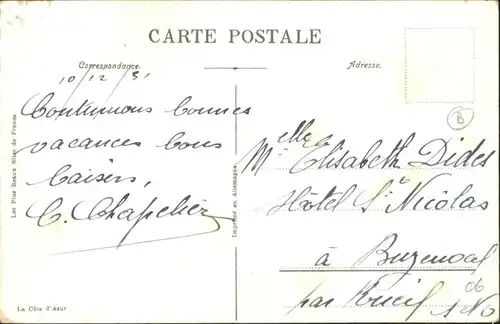 CARTE POSTALE
Correspondance.
Adresse.
10/12/31
Continuons bonnes
vacances bons
baisers,
C. Chapelier
Melle Elisabeth Dides
Hôtel St Nicolas
à Buzenval
par Rueil S&O
B
06
Les Plus Beaux Sites de France
Imprimé en Allemagne
La Côte d'Azur